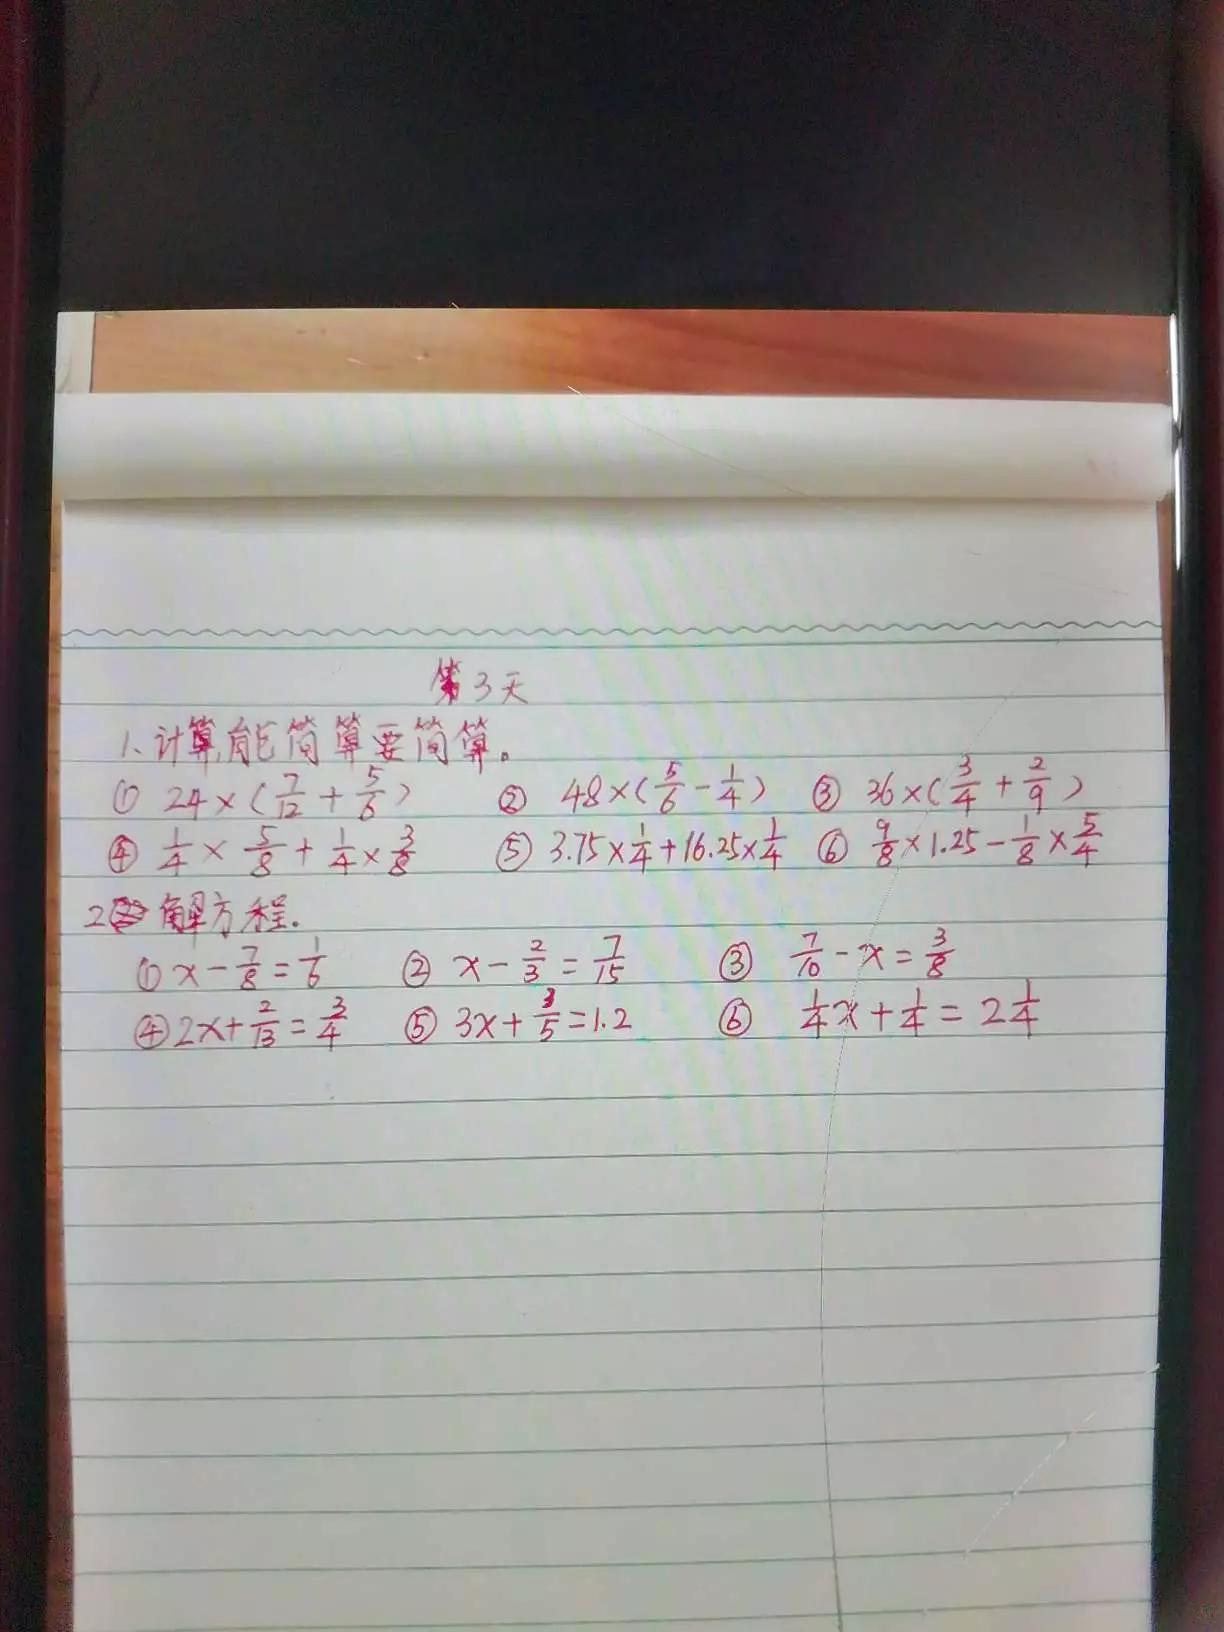 第3天
1、计算,能简算要简算。
① 24×(7/12+5/6) ② 48×(5/6-1/4) ③ 36×(3/4+2/9)
④ 1/4×5/8+1/4×3/8 ⑤ 3.75×1/4+16.25×1/4 ⑥ 9/8×1.25-1/8×5/4
2 解方程.
① x-7/8=1/6 ② x-2/3=7/15 ③ 7/10-x=3/8
④ 2x+2/13=3/4 ⑤ 3x+3/5=1.2 ⑥ 1/4x+1/4=2 1/4